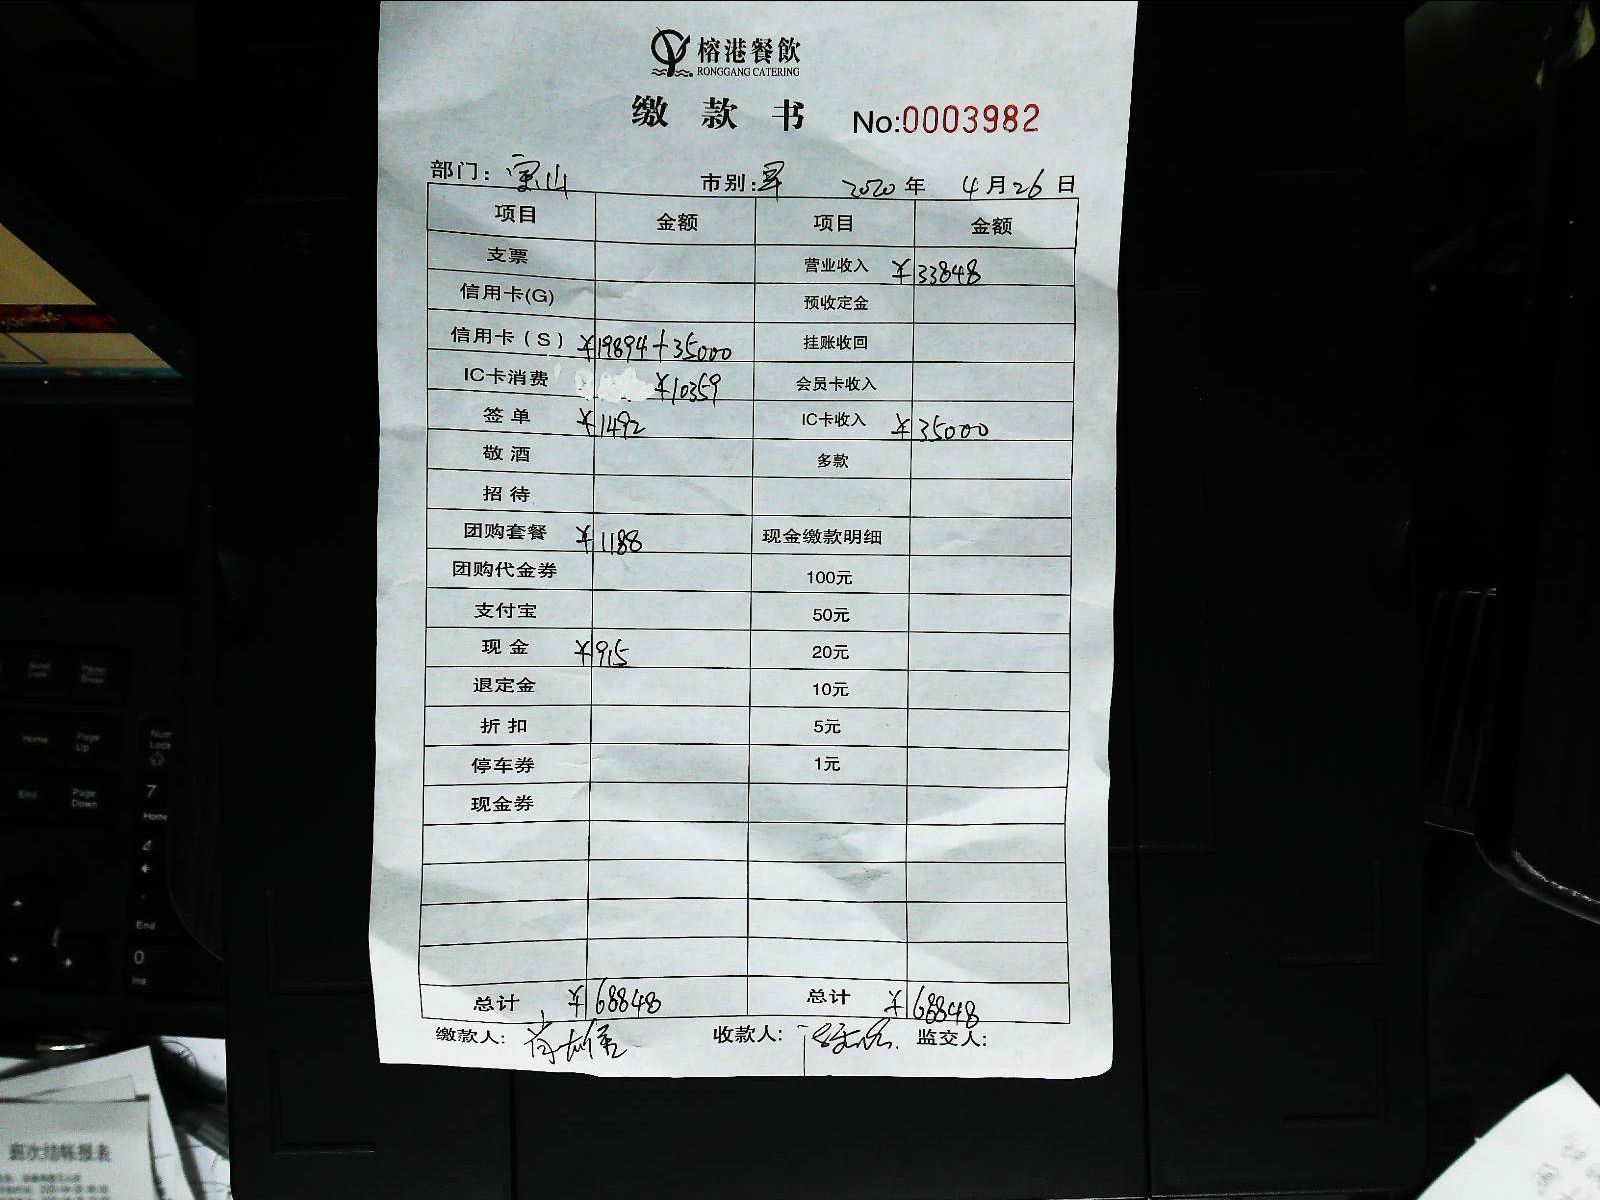 榕港餐飲
RONGGANG CATERING
缴款书 No:0003982
部门：宝山 市别：早 2020年 4月26日
项目 金额 项目 金额
支票 营业收入 ¥33848
信用卡(G) 预收定金
信用卡（S） ¥19894+35000 挂账收回
IC卡消费 ¥10359 会员卡收入
签单 ¥1492 IC卡收入 ¥35000
敬酒 多款
招待
团购套餐 ¥1188 现金缴款明细
团购代金券 100元
支付宝 50元
现金 ¥915 20元
退定金 10元
折扣 5元
停车券 1元
现金券
总计 ¥68848 总计 ¥68848
缴款人: 收款人: 监交人:
Scroll Lock
Pause Break
Home
Page Up
Num Lock
End
Page Down
7
Home
4
End
0
Ins
班次结帐报表